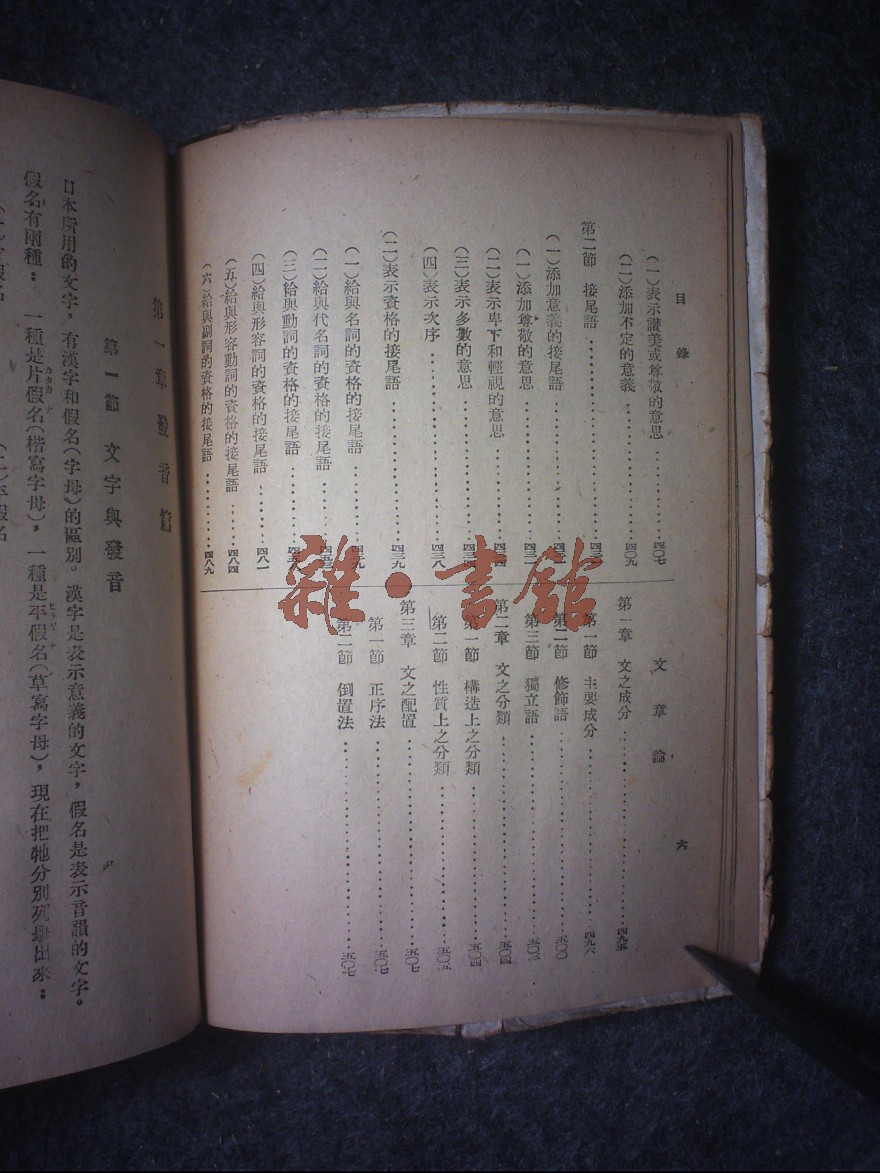 目錄
(一)表示讚美或尊敬的意思……四〇七
(二)添加不定的意義……四〇九
第二節 接尾語……
(一)添加意義的接尾語……
(一)添加尊敬的意思……
(二)表示卑下和輕視的意思……
(三)表示多數的意思……
(四)表示次序……四三八
(二)表示資格的接尾語……四三九
(一)給與名詞的資格的接尾語……
(二)給與代名詞的資格的接尾語……
(三)給與動詞的資格的接尾語……
(四)給與形容詞的資格的接尾語……四八一
(五)給與形容動詞的資格的接尾語……四八四
(六)給與副詞的資格的接尾語……四八九
文章論
第一章 文之成分……四九五
第一節 主要成分……四九六
第二節 修飾語……五〇〇
第三節 獨立語……五〇三
第二章 文之分類……五〇四
第一節 構造上之分類……五〇四
第二節 性質上之分類……五〇五
第三章 文之配置……五〇七
第一節 正序法……五〇七
第二節 倒置法……五〇七
六
雜·書館
第一章 發音篇
第一節 文字與發音
日本所用的文字,有漢字和假名(字母)的區別。漢字是表示意義的文字,假名是表示音韻的文字。
假名有兩種: 一種是片假名(楷寫字母),一種是平假名(草寫字母),現在把牠分別列舉出來: